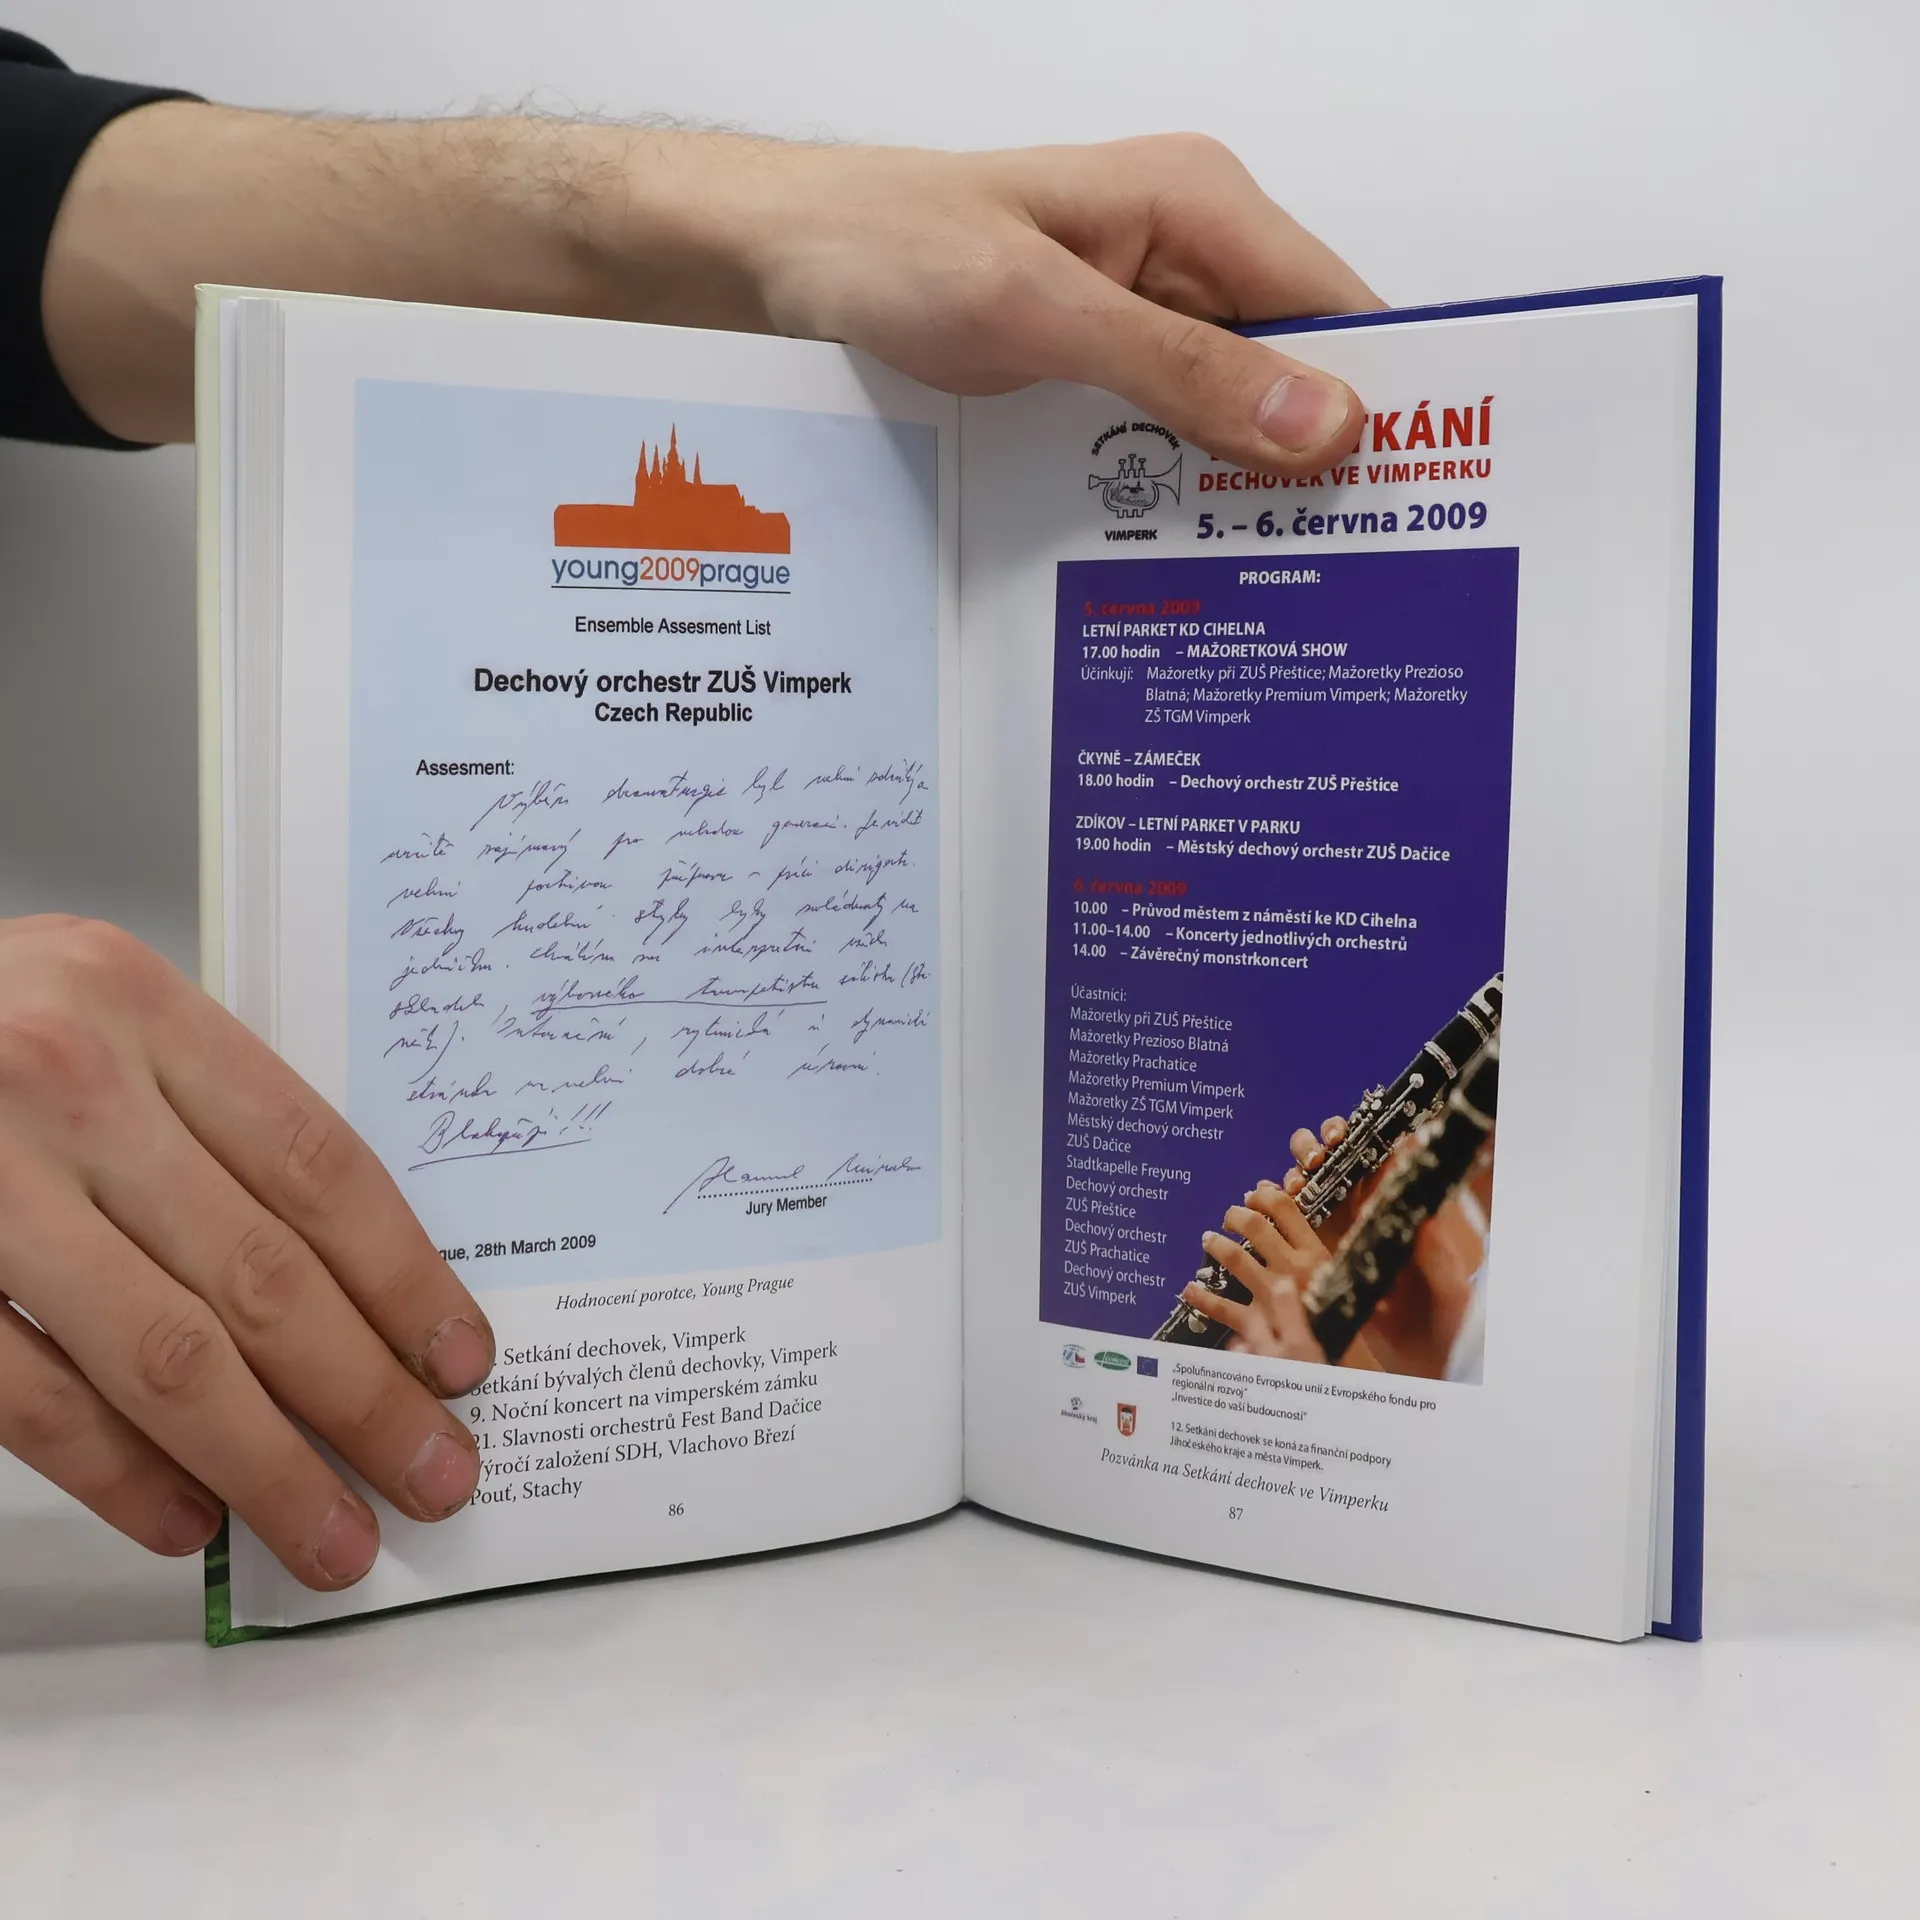 young2009prague
Ensemble Assesment List
Dechový orchestr ZUŠ Vimperk
Czech Republic
Assesment:
Výběr dramaturgie byl velmi
určitě zajímavý pro generaci. Je vidět
velmi poctivou práci dirigenta.
Všechny hudební styly byly zvládnuty na
jedničku. Chválím
výborného trumpetistu sólistu
Intonační, rytmická i dynamická
stránka na velmi dobré úrovni.
Blahopřeji!!!
Jury Member
gue, 28th March 2009
Hodnocení porotce, Young Prague
. Setkání dechovek, Vimperk
Setkání bývalých členů dechovky, Vimperk
9. Noční koncert na vimperském zámku
21. Slavnosti orchestrů Fest Band Dačice
Výročí založení SDH, Vlachovo Březí
Pouť, Stachy
86
SETKÁNÍ DECHOVEK
VIMPERK
TKÁNÍ
DECHOVEK VE VIMPERKU
5. – 6. června 2009
PROGRAM:
5. června 2009
LETNÍ PARKET KD CIHELNA
17.00 hodin – MAŽORETKOVÁ SHOW
Účinkují: Mažoretky při ZUŠ Přeštice; Mažoretky Prezioso
Blatná; Mažoretky Premium Vimperk; Mažoretky
ZŠ TGM Vimperk
ČKYNĚ – ZÁMEČEK
18.00 hodin – Dechový orchestr ZUŠ Přeštice
ZDÍKOV – LETNÍ PARKET V PARKU
19.00 hodin – Městský dechový orchestr ZUŠ Dačice
6. června 2009
10.00 – Průvod městem z náměstí ke KD Cihelna
11.00–14.00 – Koncerty jednotlivých orchestrů
14.00 – Závěrečný monstrkoncert
Účastníci:
Mažoretky při ZUŠ Přeštice
Mažoretky Prezioso Blatná
Mažoretky Prachatice
Mažoretky Premium Vimperk
Mažoretky ZŠ TGM Vimperk
Městský dechový orchestr
ZUŠ Dačice
Stadtkapelle Freyung
Dechový orchestr
ZUŠ Přeštice
Dechový orchestr
ZUŠ Prachatice
Dechový orchestr
ZUŠ Vimperk
„Spolufinancováno Evropskou unií z Evropského fondu pro
regionální rozvoj"
„Investice do vaší budoucnosti"
Jihočeský kraj
12. Setkání dechovek se koná za finanční podpory
Jihočeského kraje a města Vimperk.
Pozvánka na Setkání dechovek ve Vimperku
87